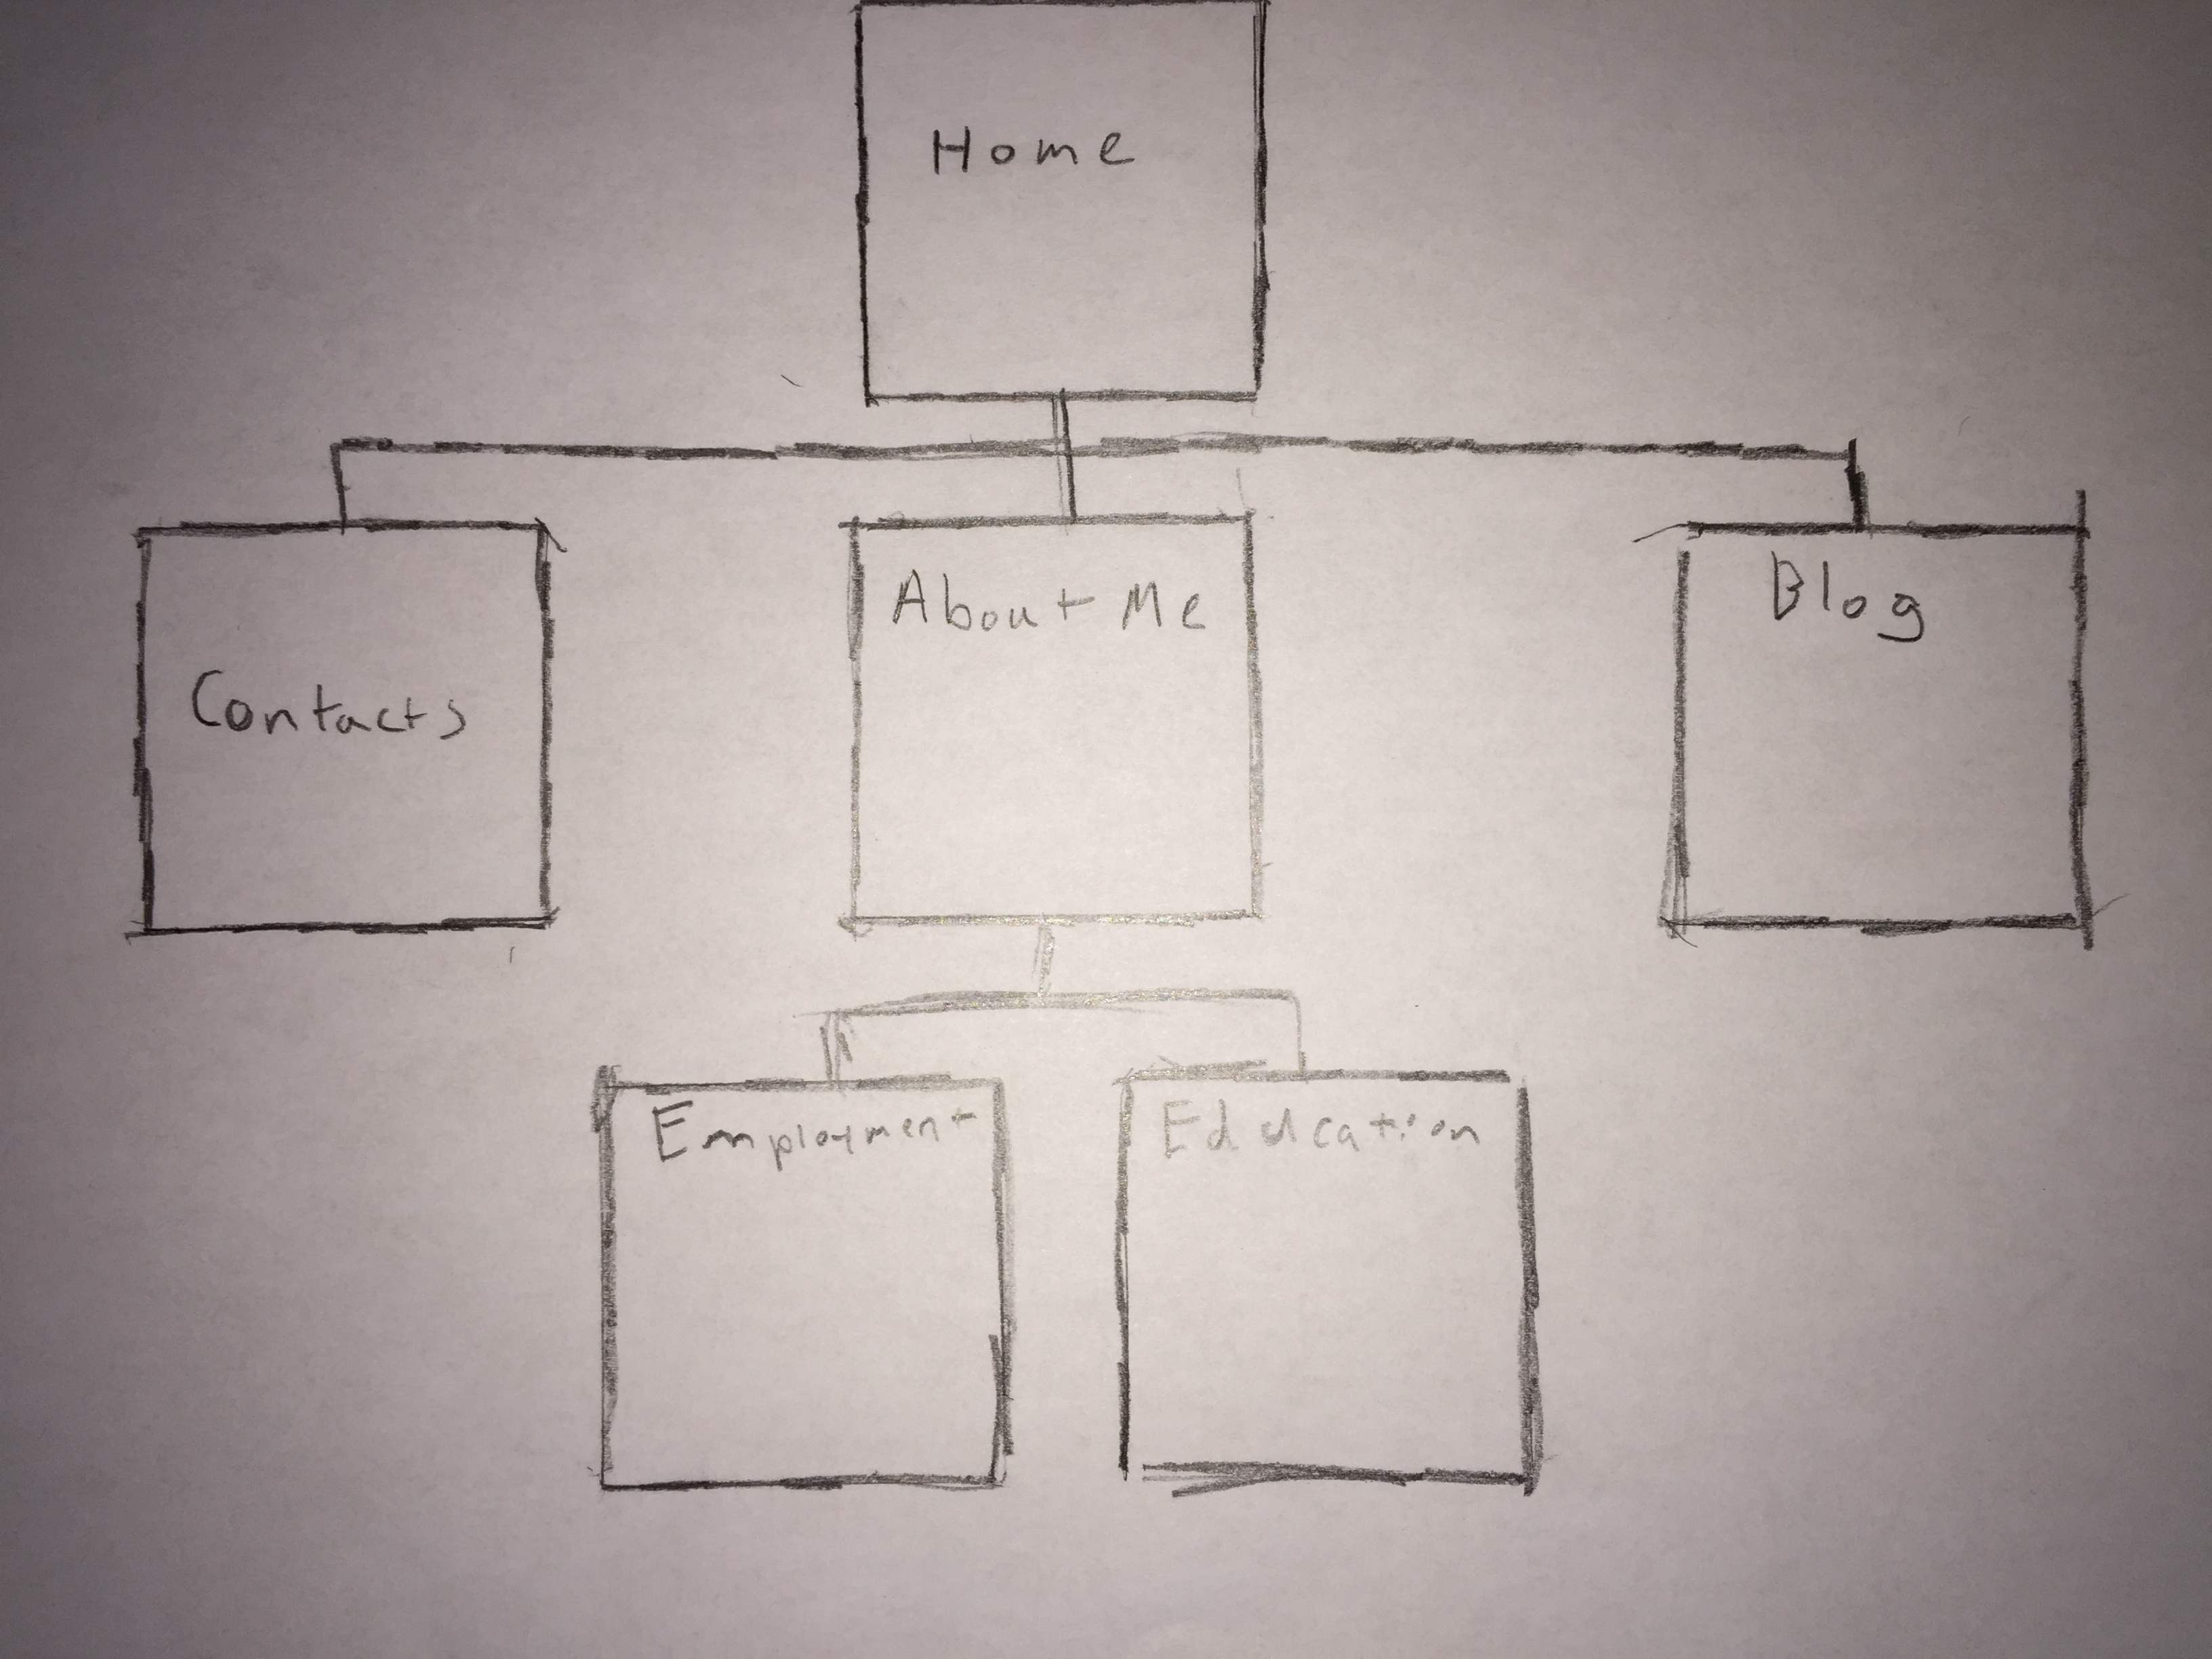 Home
Contacts
About Me
Blog
Employment
Education